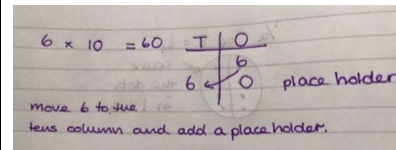 6 × 10 = 60 T O
6
6 0 place holder
move 6 to the
tens column and add a place holder.